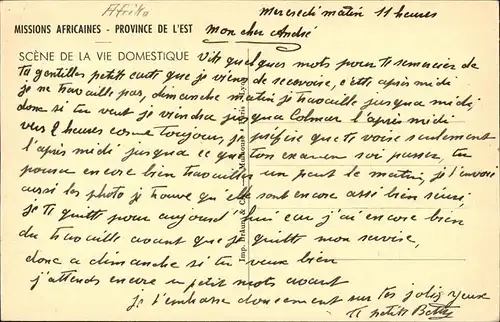 Afrika
Mercredi matin 11 heures
MISSIONS AFRICAINES - PROVINCE DE L'EST
mon cher André
SCÈNE DE LA VIE DOMESTIQUE
Vite quelques mots pour te remercier de
ta gentilles petite carte que je viens de recevoire, cette après midi
je ne travaille pas, dimanche matin je travaille jusqua midi,
donc si tu veut je viendrai jusqua Colmar l'après midi
vers 2 heures comme toujours, je préfère que te voise seulement
l'après midi jusqua ce que ton examen soi passer, tu
pourra encore bien travailler un peut le matin, je t'envoi
aussi les photo je trouve qu'elle sont encore assé bien réussi,
je te quitte pour aujourd'hui car j'ai encore bien
du travaille avant que je quitte mon service,
donc a dimanche si tu veux bien
j'attends encore un petit mots avant
je t'embrasse doucement sur tes jolis yeux
ta petite Betty
Imp. Braun &